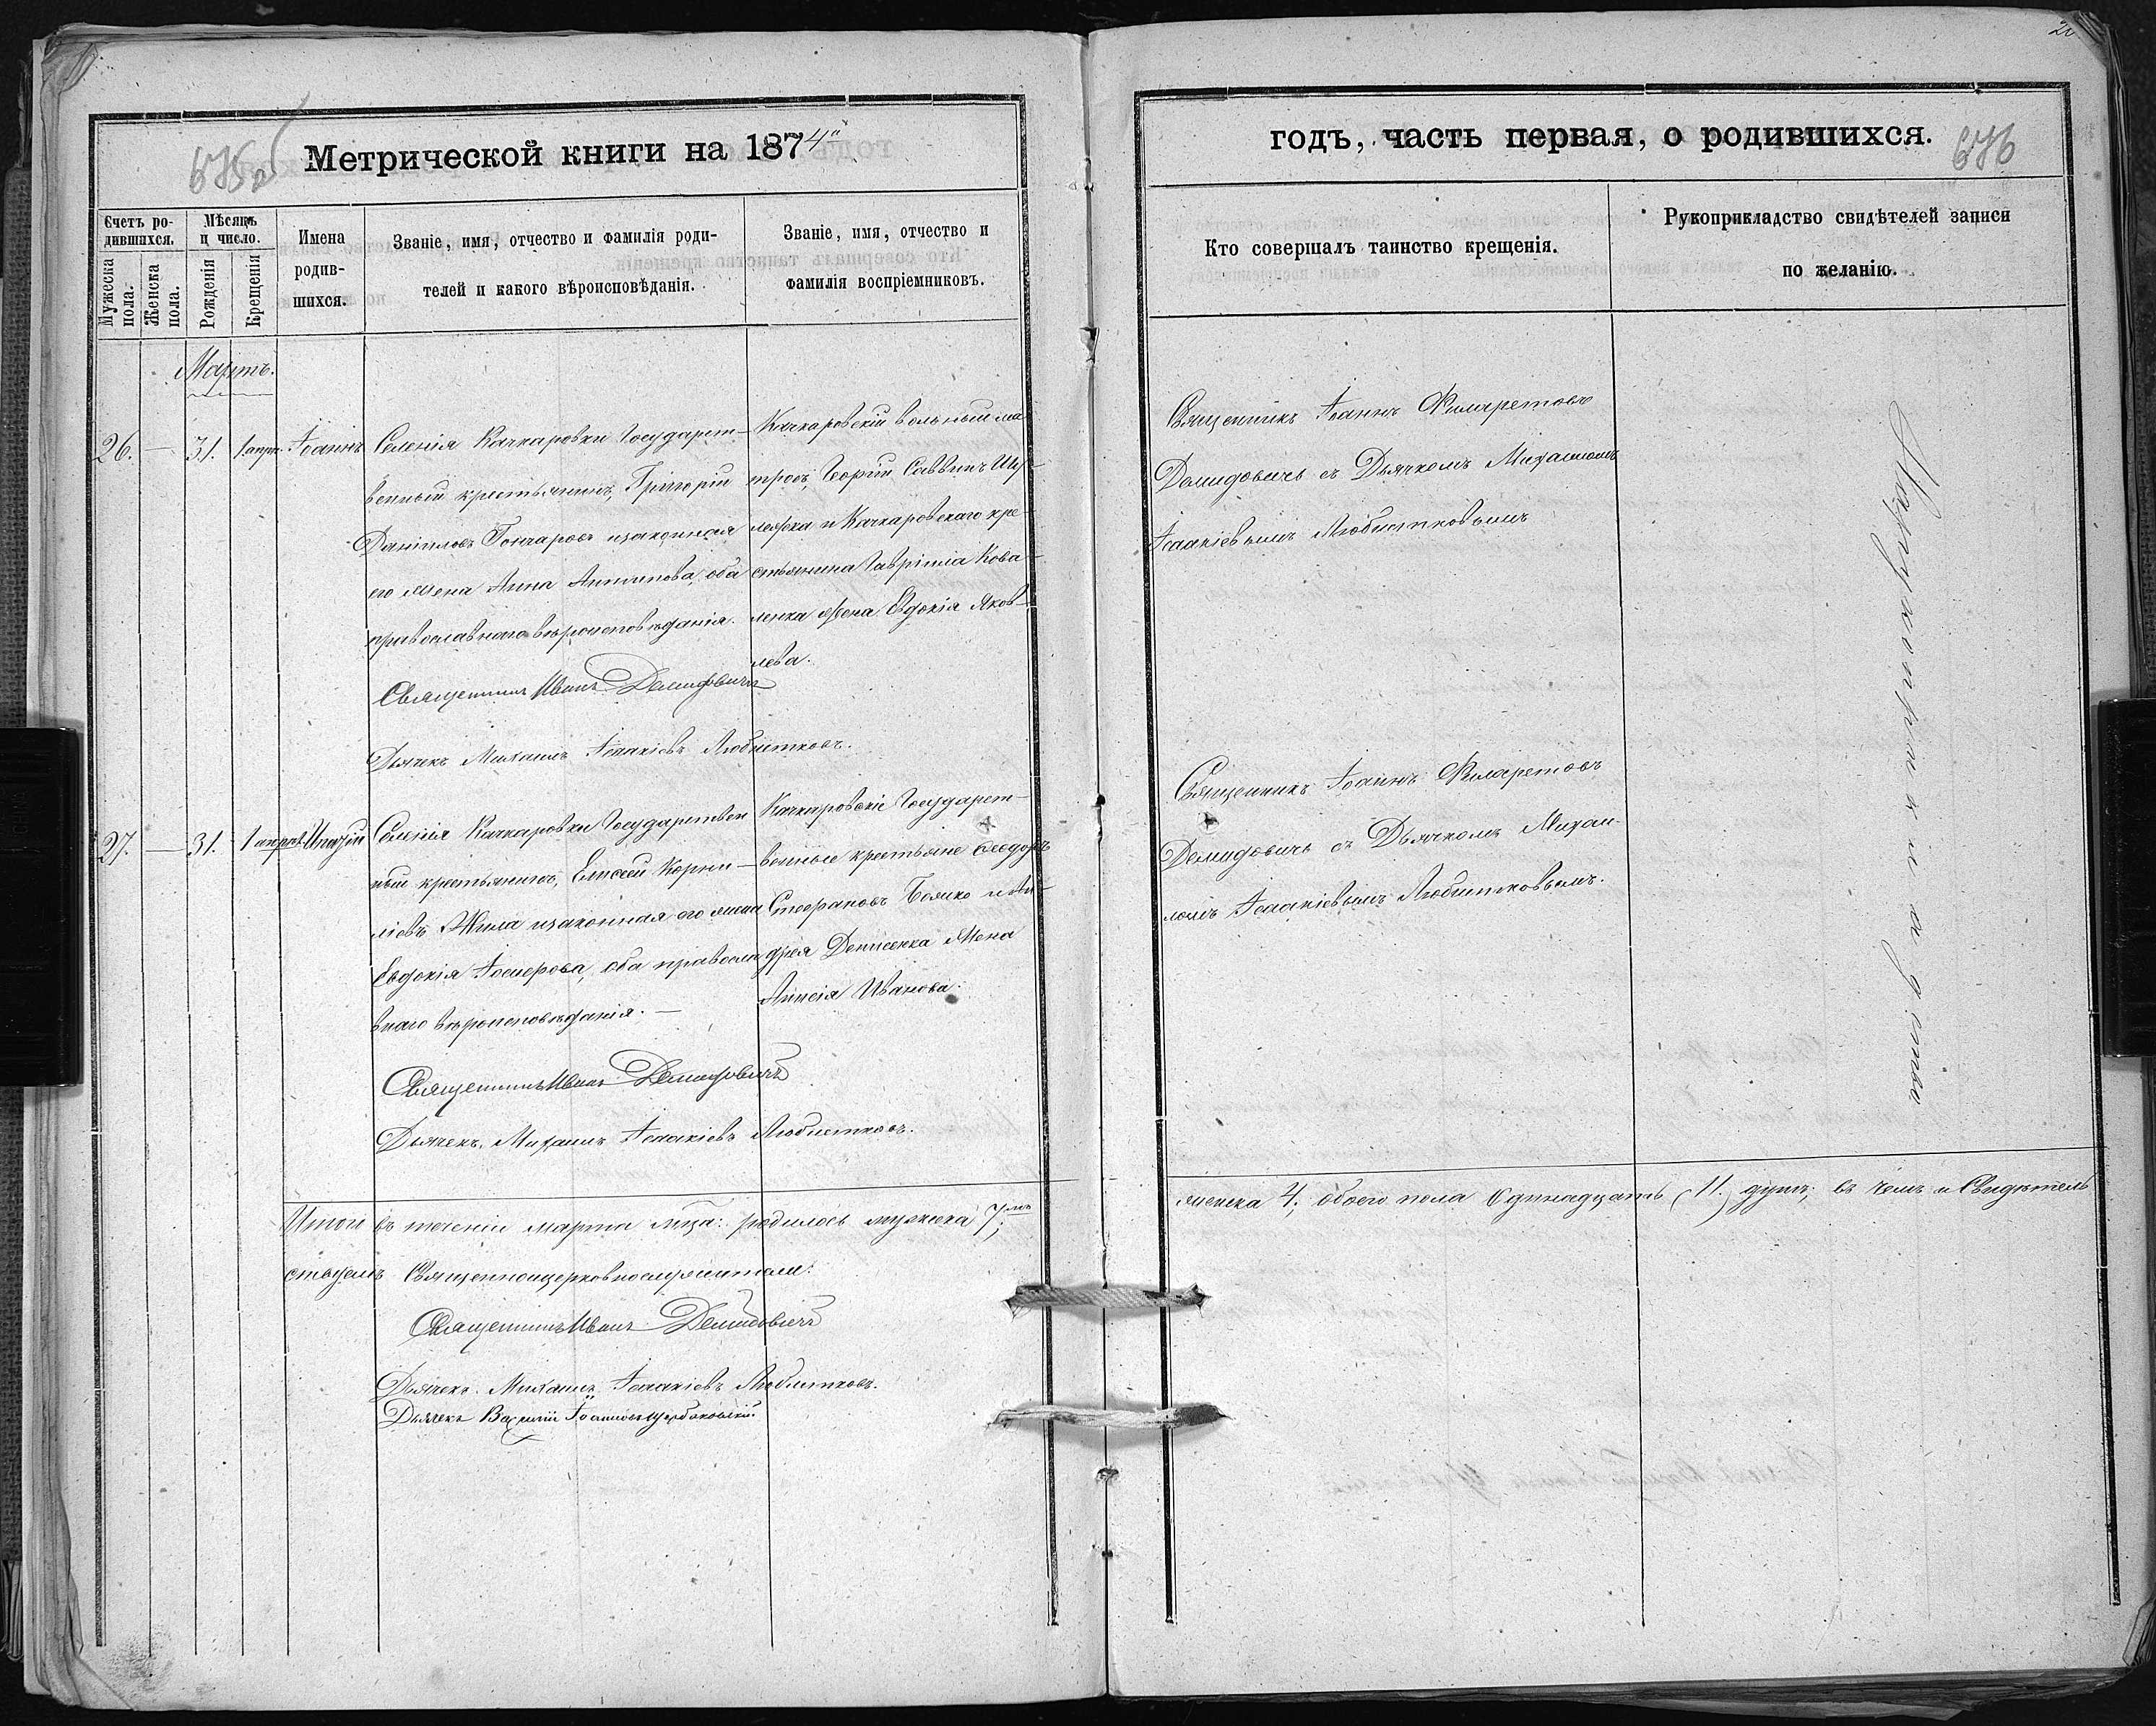 Метрической книги на 1874й
Счетъ ро-
дившихся.
Мѣсяцъ
и число.
Мужеска
пола.
Женска
пола.
Рожденія
Крещенія
Имена
родив-
шихся.
Званіе, имя, отчество и фамилія роди-
телей и какого вѣроисповѣданія.
Званіе, имя, отчество и
фамилія воспріемниковъ.
Мартъ.
26. — 31. 1 апр. Іоаннъ
Селенія Качкаровки Государст-
венный крестьянинъ, Григорій
Даніиловъ Гончаровъ и законная
его жена Анна Антипова, оба
православнаго вѣроисповѣданія.
Священникъ Иванъ Демидовичъ
Дьячекъ Михаилъ Ісаакіевъ Любистковъ.
Качкаровскій вольный ма
тросъ, Георгій Саввинъ Шу-
ляжка и Качкаровскаго кре-
стьянина Гавріила Кова-
ленка жена Евдокія Яков-
лева.
27. — 31. 1 апрѣл.
Селенія Качкаровки Государствен
ный крестьянинъ, Елисей Корни-
ліевъ Жила и законная его жена
Евдокія Іосифова, оба правосла
внаго вѣроисповѣданія. —
Священникъ Иванъ Демидовичъ
Дьячекъ Михаилъ Ісаакіевъ Любистковъ.
Качкаровскіе Государст-
венные крестьяне Ѳеодоръ
Стефановъ Бойко и Ан-
дрея Денисенка жена
Анисія Иванова.
Итого въ теченіи марта мца: родилось мужеска 7мь;
ствуемъ Священноцерковнослужители:
Священникъ Иванъ Демидовичъ
Дьячекъ Михаилъ Ісаакіевъ Любистковъ.
Дьячекъ Василій Іоанновъ Щербаковскій.
годъ, часть первая, о родившихся.
676
Кто совершалъ таинство крещенія.
Рукоприкладство свидѣтелей записи
по желанію.
Священникъ Іоаннъ Филаретовъ
Демидовичъ съ Дьячкомъ Михаиломъ
Ісаакіевымъ Любистковымъ
Священникъ Іоаннъ Филаретовъ
Демидовичъ съ Дьячкомъ Михаи-
ломъ Ісаакіевымъ Любистковымъ.
женска 4. обоего пола Одинадцать (11.) душъ; въ чемъ и Свидѣтель